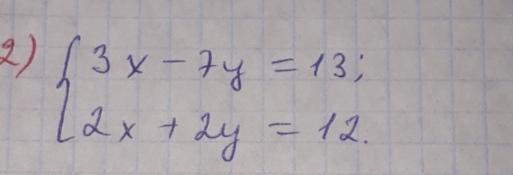 2) { 3x - 7y = 13;
2x + 2y = 12.